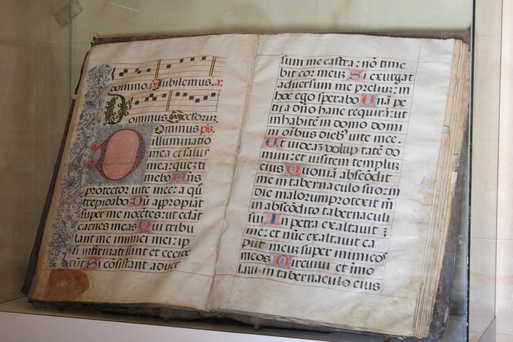 domino. Jubilemus. a
Dominus defensor.
Dominus ps.
illuminatio
mea et salus
mea: quem ti
mebo. Dns
protector vite mee: a quo
trepidabo. Dum appropiant
super me nocentes: ut edant
carnes meas. Qui tribu
lant me inimici mei: ip
si infirmati sunt et cecider
Si consistant adver
sum me castra: nō time
bit cor meum. Si exurgat
adversum me prelium: in
hoc ego sperabo. Unā pe
tii a dnō hanc requirā: ut
inhabitē in domo domini
oībus diebꝰ vite mee.
Ut videā volūptatē do
mini: et visitem templum
eius. Quoniā abscōdit
me in tabernaculo suo: in
die malorum protexit me in
abscōdito tabernaculi
sui. In petra exaltavit
me: et nūc exaltavit ca
put meum super inimicos
meos. Circuivi et īmo
lavi in tabernaculo eius